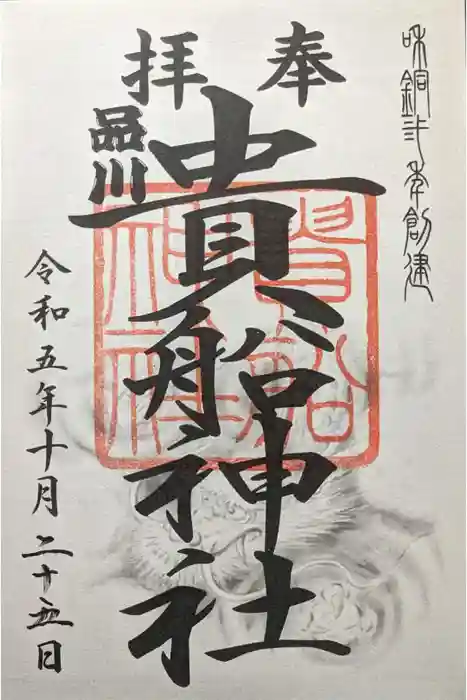 和銅弐年創建
奉拝
品川
貴船神社
貴船
神社
令和五年十月二十五日